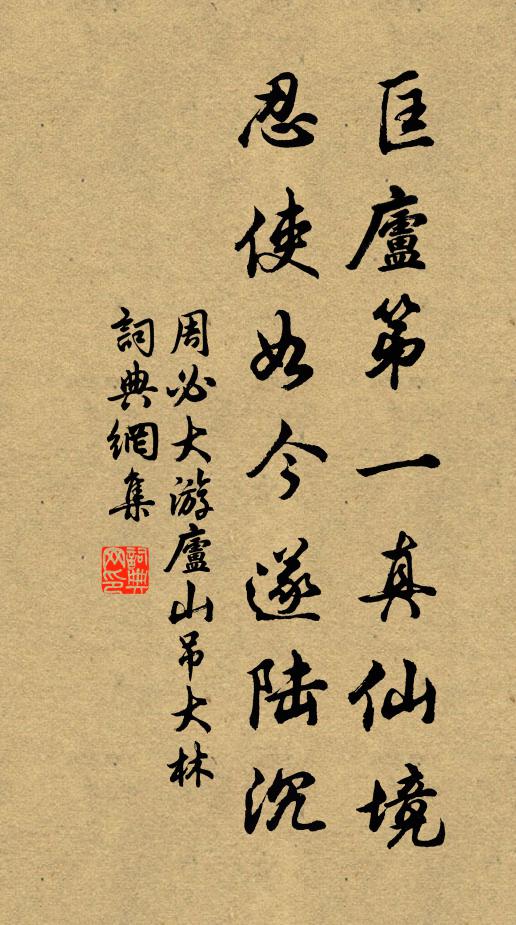 匡廬第一真仙境
忍使如今遂陆沉
周必大游廬山吊大林
詞典網集
詞典网印